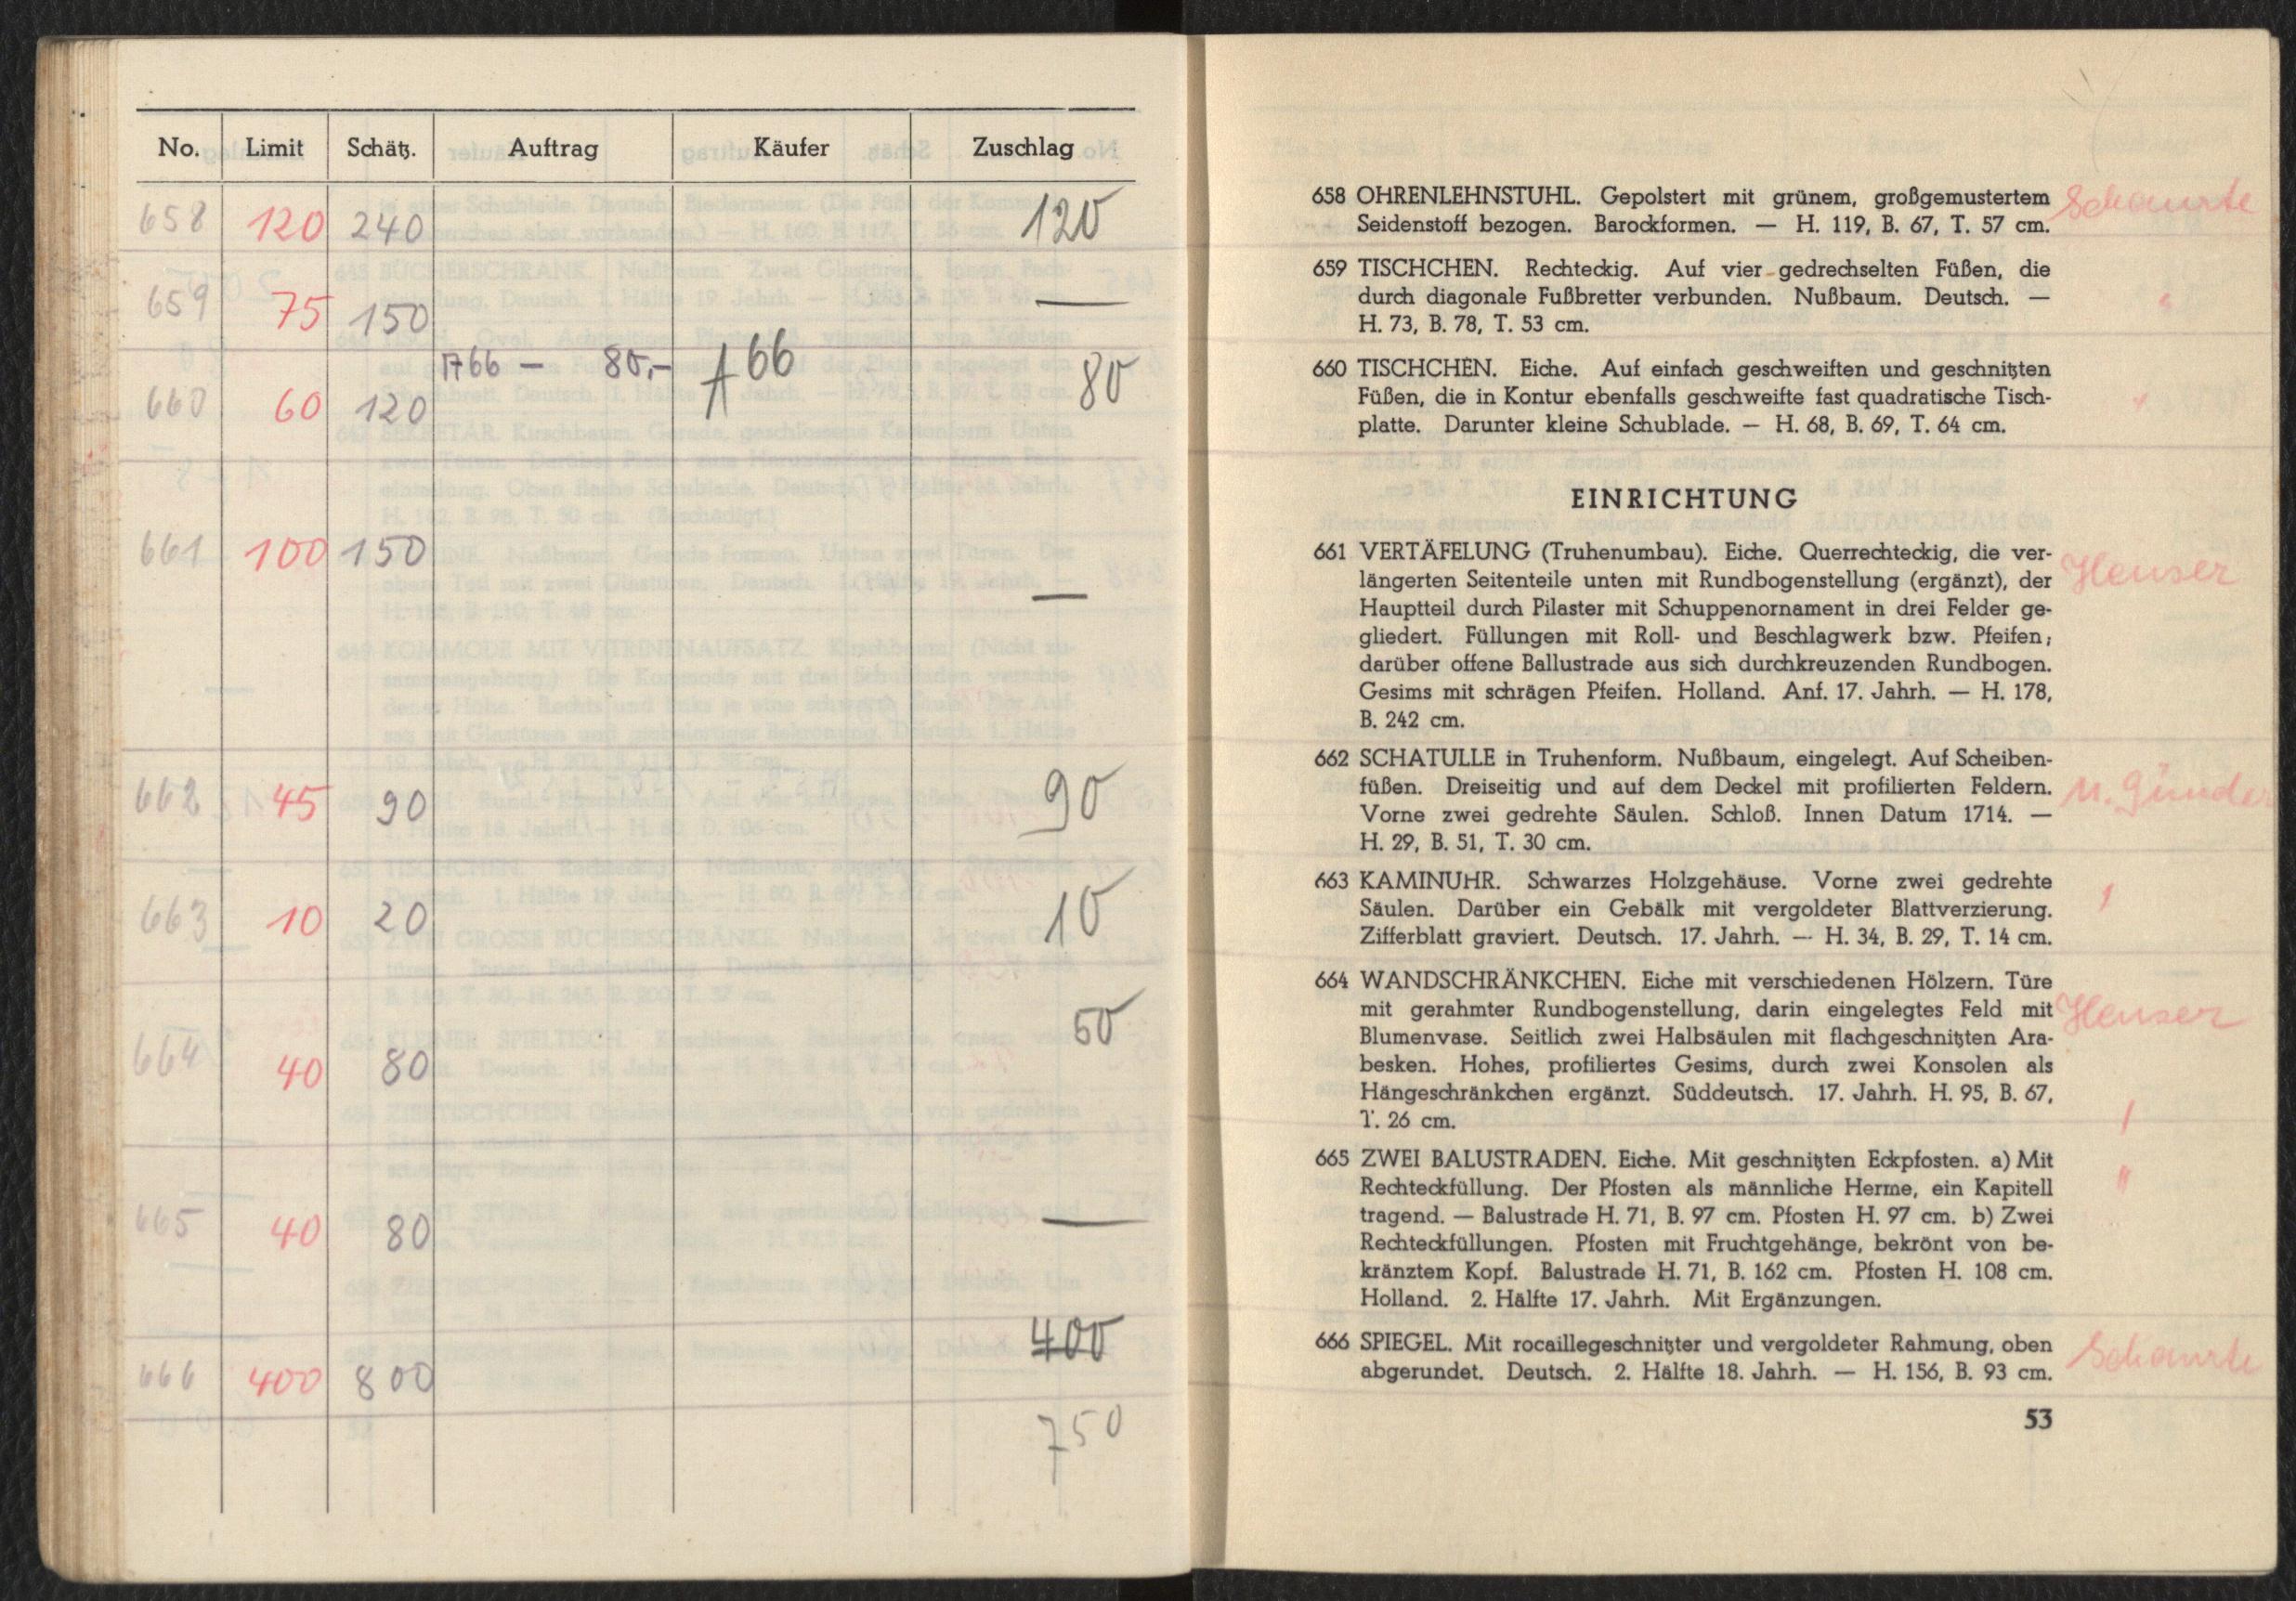 No. Limit Schätz. Auftrag Käufer Zuschlag
658 120 240 120
659 75 150 —
660 60 120 A66 — 80,- A66 80
661 100 150 —
662 45 90 90
663 10 20 10
664 40 80 50
665 40 80 —
666 400 800 400
750
658 OHRENLEHNSTUHL. Gepolstert mit grünem, großgemustertem Schaurte
Seidenstoff bezogen. Barockformen. — H. 119, B. 67, T. 57 cm.
659 TISCHCHEN. Rechteckig. Auf vier gedrechselten Füßen, die
durch diagonale Fußbretter verbunden. Nußbaum. Deutsch. — "
H. 73, B. 78, T. 53 cm.
660 TISCHCHEN. Eiche. Auf einfach geschweiften und geschnitzten
Füßen, die in Kontur ebenfalls geschweifte fast quadratische Tisch- "
platte. Darunter kleine Schublade. — H. 68, B. 69, T. 64 cm.
EINRICHTUNG
661 VERTÄFELUNG (Truhenumbau). Eiche. Querrechteckig, die ver- Heuser
längerten Seitenteile unten mit Rundbogenstellung (ergänzt), der
Hauptteil durch Pilaster mit Schuppenornament in drei Felder ge-
gliedert. Füllungen mit Roll- und Beschlagwerk bzw. Pfeifen;
darüber offene Ballustrade aus sich durchkreuzenden Rundbogen.
Gesims mit schrägen Pfeifen. Holland. Anf. 17. Jahrh. — H. 178,
B. 242 cm.
662 SCHATULLE in Truhenform. Nußbaum, eingelegt. Auf Scheiben-
füßen. Dreiseitig und auf dem Deckel mit profilierten Feldern. M. Günder
Vorne zwei gedrehte Säulen. Schloß. Innen Datum 1714. —
H. 29, B. 51, T. 30 cm.
663 KAMINUHR. Schwarzes Holzgehäuse. Vorne zwei gedrehte
Säulen. Darüber ein Gebälk mit vergoldeter Blattverzierung.
Zifferblatt graviert. Deutsch. 17. Jahrh. — H. 34, B. 29, T. 14 cm.
664 WANDSCHRÄNKCHEN. Eiche mit verschiedenen Hölzern. Türe
mit gerahmter Rundbogenstellung, darin eingelegtes Feld mit Heuser
Blumenvase. Seitlich zwei Halbsäulen mit flachgeschnitzten Ara-
besken. Hohes, profiliertes Gesims, durch zwei Konsolen als
Hängeschränkchen ergänzt. Süddeutsch. 17. Jahrh. H. 95, B. 67,
T. 26 cm.
665 ZWEI BALUSTRADEN. Eiche. Mit geschnitzten Eckpfosten. a) Mit "
Rechteckfüllung. Der Pfosten als männliche Herme, ein Kapitell
tragend. — Balustrade H. 71, B. 97 cm. Pfosten H. 97 cm. b) Zwei
Rechteckfüllungen. Pfosten mit Fruchtgehänge, bekrönt von be-
kränztem Kopf. Balustrade H. 71, B. 162 cm. Pfosten H. 108 cm.
Holland. 2. Hälfte 17. Jahrh. Mit Ergänzungen.
666 SPIEGEL. Mit rocaillegeschnitzter und vergoldeter Rahmung, oben Schaurte
abgerundet. Deutsch. 2. Hälfte 18. Jahrh. — H. 156, B. 93 cm.
53